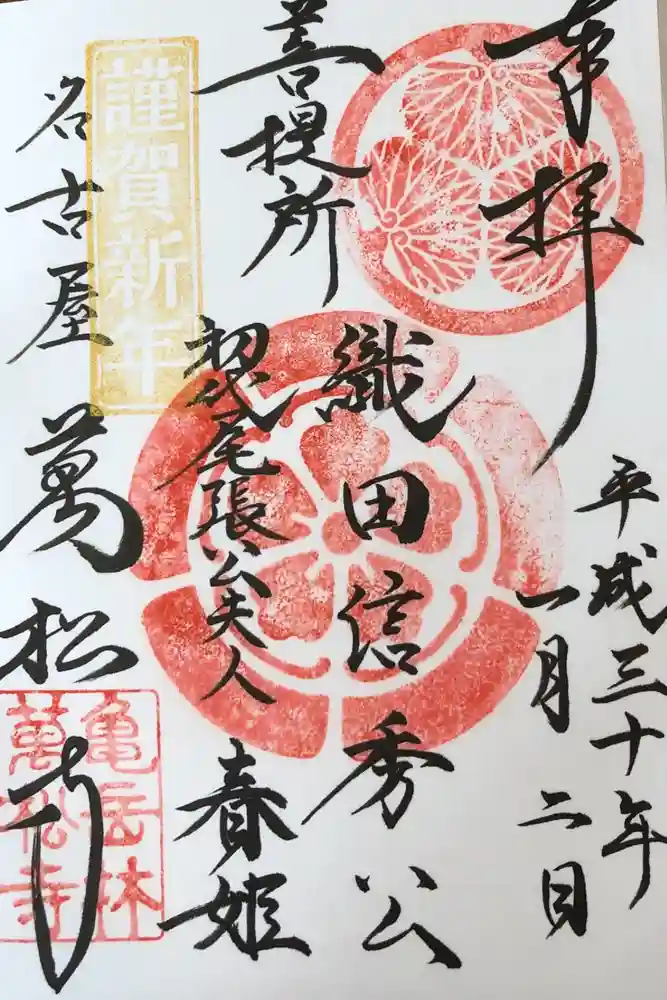 奉拝
平成三十年
一月二日
菩提所
織田信秀公
初代尾張公夫人
春姫
謹賀新年
名古屋
萬松寺
亀岳林
萬松寺